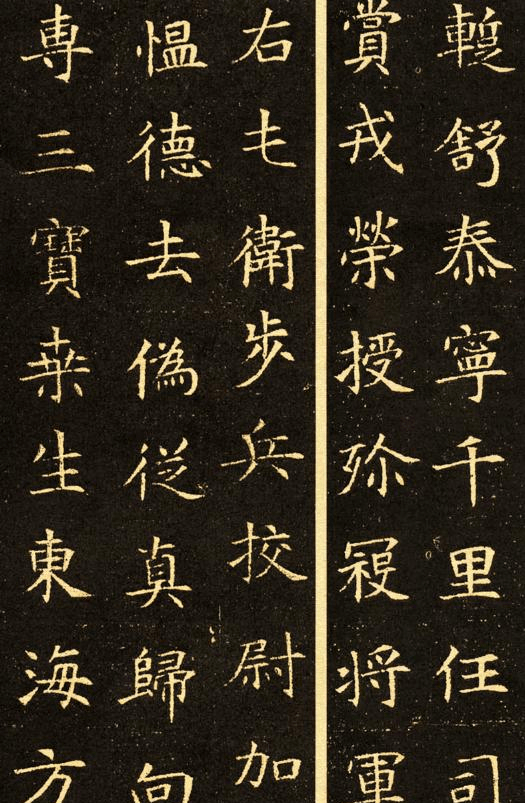 蹔舒泰寧千里任司
賞戎榮授弥寇將軍
右毛衛步兵挍尉加
愠德去偽從真歸向
専三寶桒生東海方